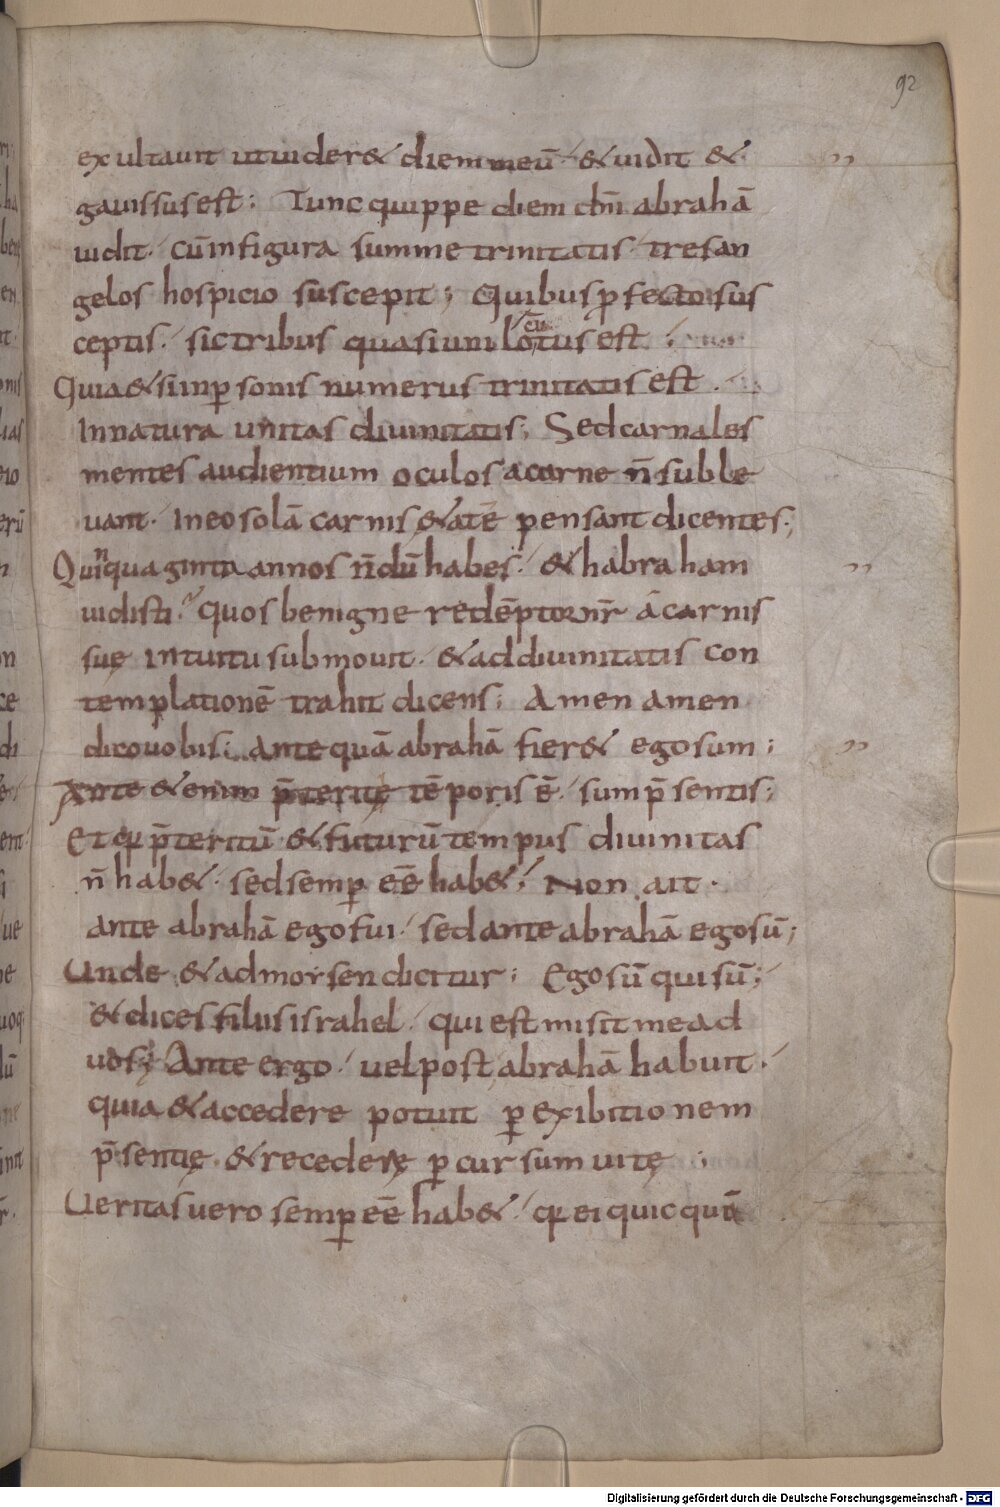 92
exultauit utuider& diem meū · & uidit &
gauissus est : Tunc quippe diem dn̄i abrahā
uidit · cū infigura summe trinitatis · tres an
gelos hospicio suscepit ; Quibus ꝓfecto sus
ceptis · sic tribus quasi uni locūtus est ·
Quia & si inp̱sonis numerus trinitatis est ·
Innatura unitas diuinitatis ; Sed carnales
mentes audientium oculos acarne n̄ suble
uant · ineo solā carnis &atē pensant dicentes ;
Quinquaginta annos n̄dū habes · & habraham
uidisti · quos benigne redēptor nr̄ a carnis
suę intuitu submouit · & ad diuinitatis con
templationē trahit dicens ; Amen amen
dico uobis ; Ante quā abrahā fier& ego sum ;
Ante &enim p̄teritę tēporis ē · sum p̄sentis ;
Et qꝛ p̄teritū & futurū tempus diuinitas
n̄ hab& · sed semp̱ eē hab& ; Non ait ·
ante abrahā ego fui · sed ante abrahā ego sū ;
Unde & ad moysen dicitur ; Ego sū qui sū ;
& dices filiis israhel · qui est misit me ad
uos ; Ante ergo · uel post abrahā habuit ·
quia & accedere potuit p̱ exibitionem
p̄sentię & recederę p̱ cursum uitę ;
Ueritas uero semp̱ eē hab& · qꝛ ei quicquā
Digitalisierung gefördert durch die Deutsche Forschungsgemeinschaft - DFG